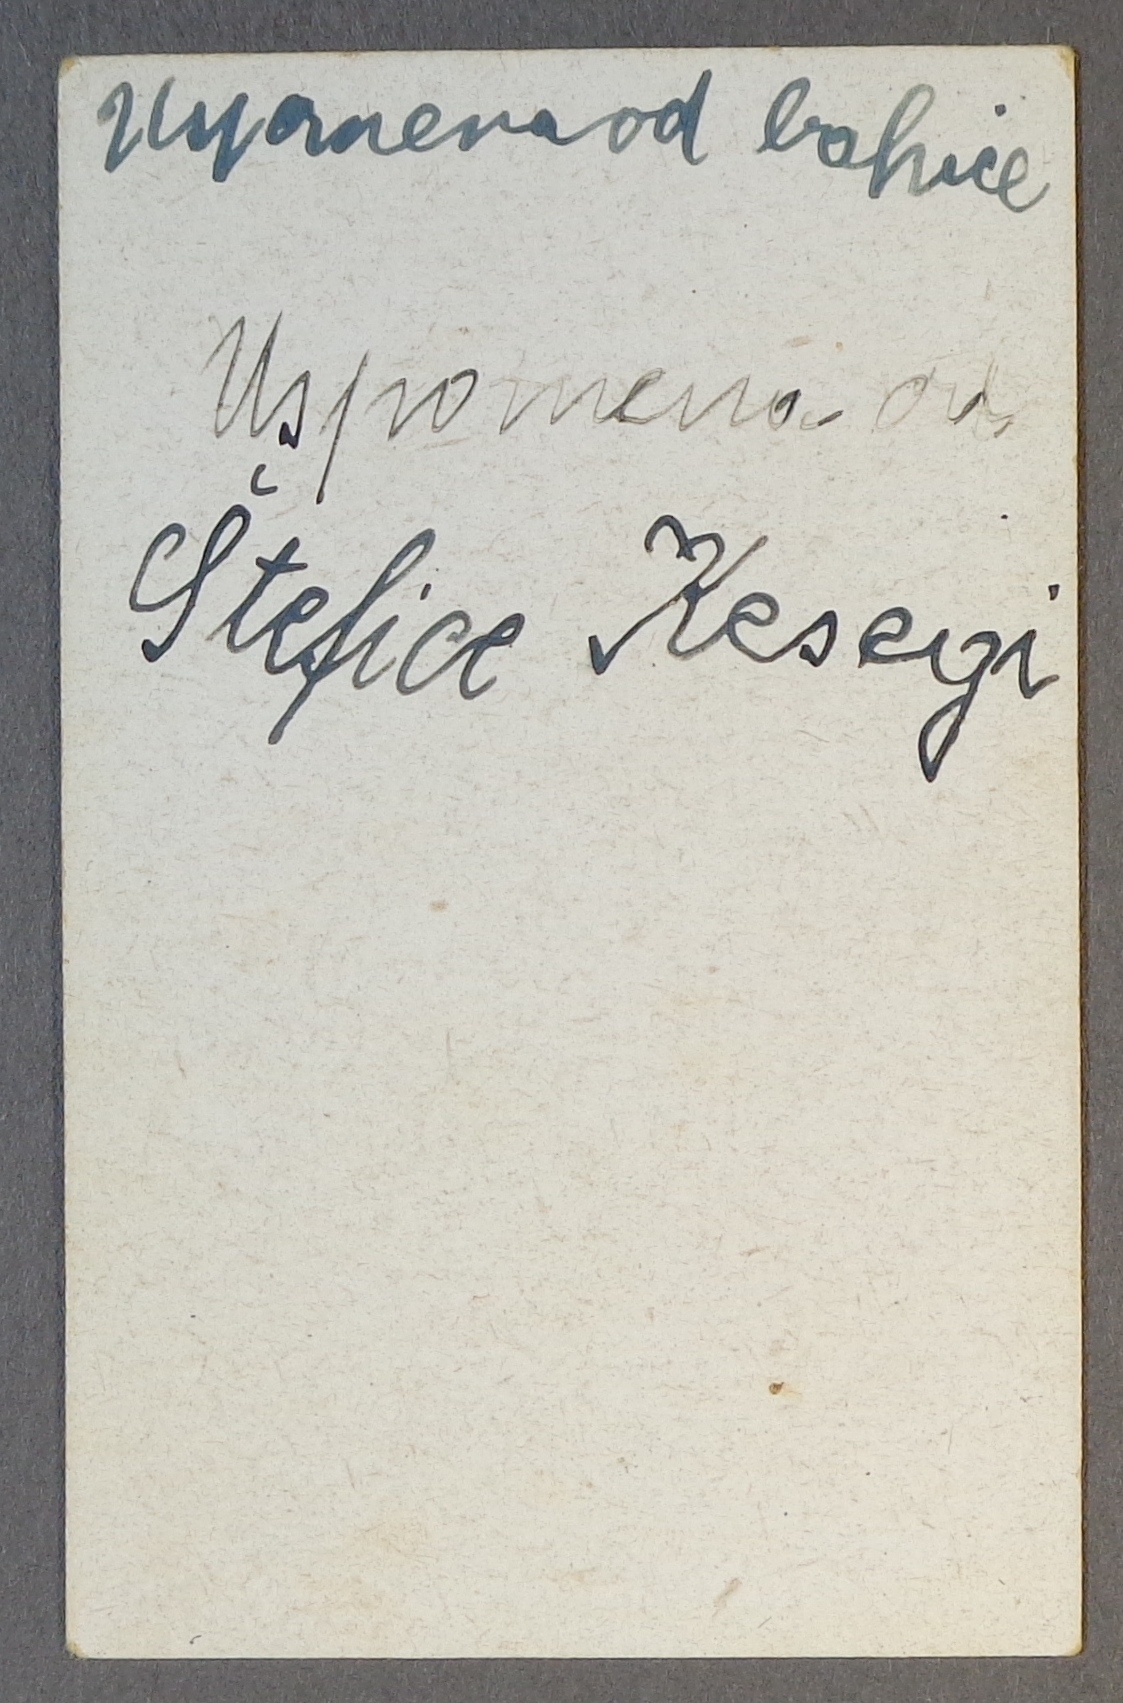 Uspomena od
Uspomena od
Štefice Kesegi